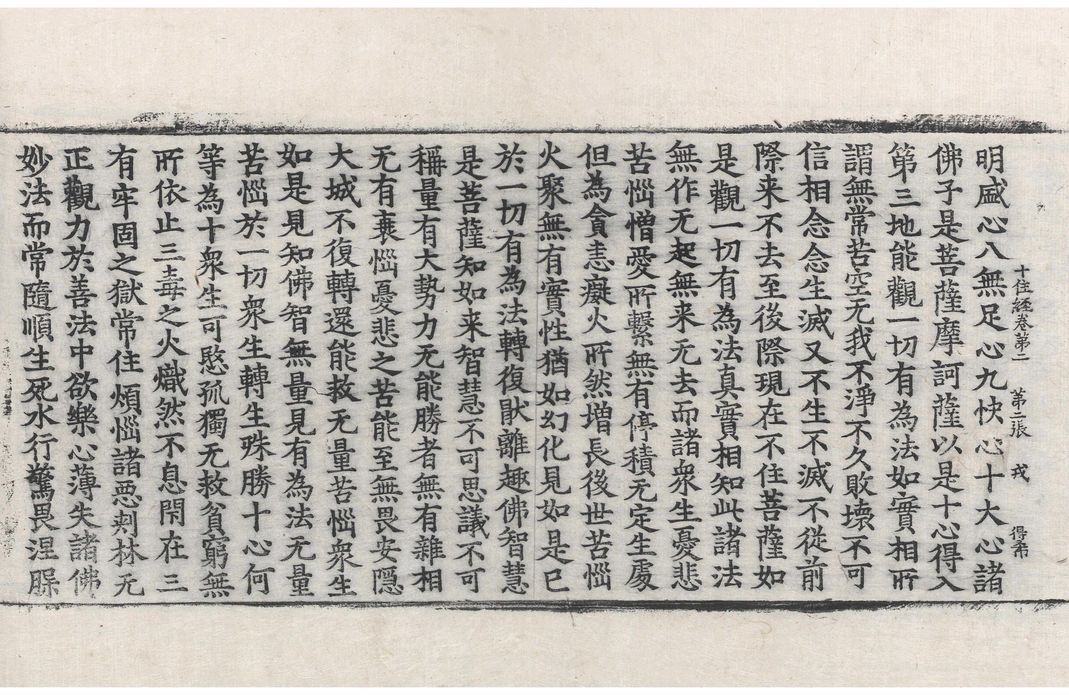 明盛心八無足心九快心十大心諸
十住經卷第二　第二張　戎
佛子是菩薩摩訶薩以是十心得入
第三地能觀一切有為法如實相所
謂無常苦空无我不淨不久敗壞不可
信相念念生滅又不生不滅不從前
際来不去至後際現在不住菩薩如
是觀一切有為法真實相知此諸法
無作无起無来无去而諸衆生憂悲
苦惱憎愛所繫無有停積无定生處
但為貪恚癡火所然增長後世苦惱
火聚無有實性猶如幻化見如是已
於一切有為法轉復猒離趣佛智慧
是菩薩知如来智慧不可思議不可
稱量有大勢力无能勝者無有雜相
无有衰惱憂悲之苦能至無畏安隱
大城不復轉還能救无量苦惱衆生
如是見知佛智無量見有為法无量
苦惱於一切衆生轉生殊勝十心何
等為十衆生可愍孤獨无救貧窮無
所依止三毒之火熾然不息閇在三
有牢固之獄常住煩惱諸惡刾林无
正觀力於善法中欲樂心薄失諸佛
妙法而常隨順生死水行驚畏涅槃